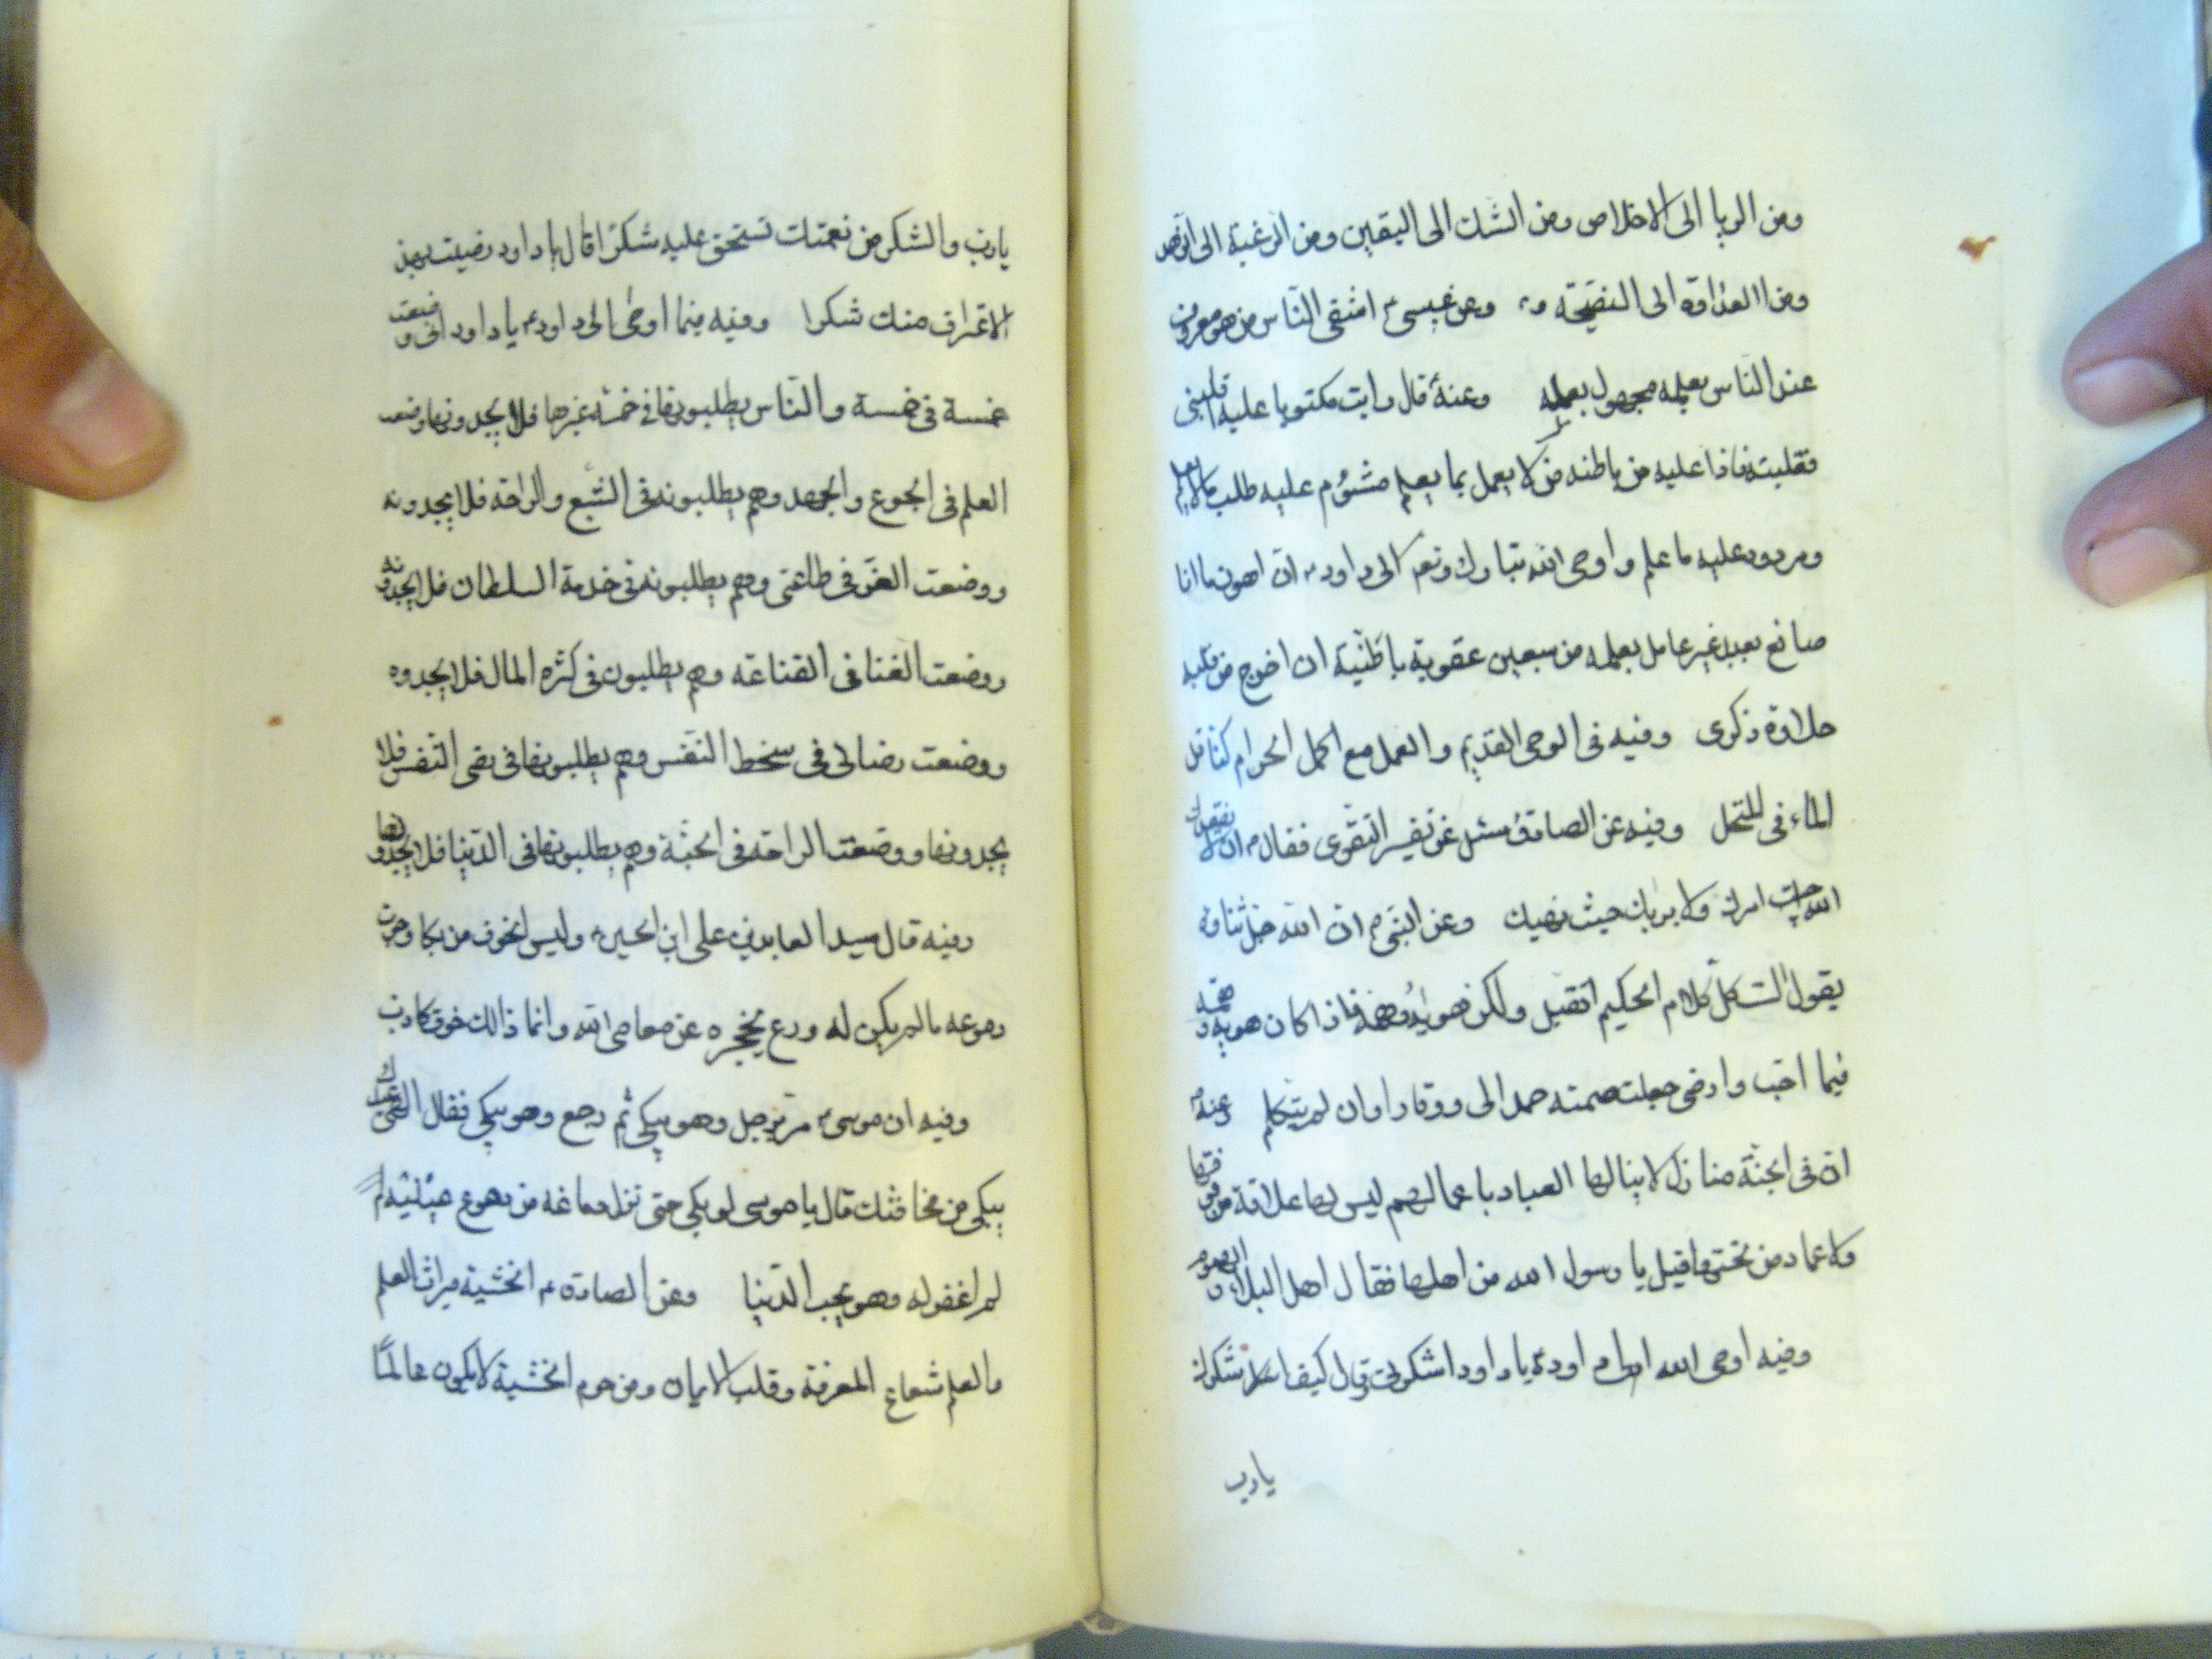 ومن الريا الى الاخلاص ومن الشك الى اليقين ومن الرغبة الى الزهد
ومن العداوة الى النصيحة وعن عيسى م اشقى الناس من هو معروف
عند الناس بعلمه مجهول بعمله وعنه قال رايت مكتوبا عليه قلبنى
فقلبته فاذا عليه من باطنه من لا يعمل بما يعلم مشئوم عليه طلب ما لا يعلم
ومردود عليه ما علم واوحى الله تبارك وتعالى الى داود م ان اهون ما انا
صانع بعبد غير عامل بعلمه من سبعين عقوبة باطنية ان اخرج من قلبه
حلاوة ذكرى وفيه فى الوحى القديم والعمل مع اكل الحرام كناقل
الماء فى المنخل وفيه عن الصادق سئل عن تفسير التقوى فقال م ان لا يفقدك
الله حيث امرك ولا يراك حيث نهيك وعن النبى م ان الله جل ثناؤه
يقول لست كل كلام الحكيم اتقبل ولكن هويه وهمه فاذا كان هويه وهمه
فيما احب وارضى جعلت صمته حمدا لى ووقارا وان لم يتكلم وعنه م
ان فى الجنة منازل لا ينالها العباد باعمالهم ليس لها علاقة من فوقها
ولا عماد من تحتها قيل يا رسول الله من اهلها فقال اهل البلاء والهموم
وفيه اوحى الله الى داود م يا داود اشكرنى قال كيف اشكرك
يارب
يارب والشكر من نعمتك تستحق عليه شكرا قال يا داود رضيت بهذا
الاعتراف منك شكرا وفيه فيما اوحى الى داود م يا داود انى وضعت
خمسة فى خمسة والناس يطلبونها فى خمسة غيرها فلا يجدونها وضعت
العلم فى الجوع والجهد وهم يطلبونه فى الشبع والراحة فلا يجدونه
ووضعت العز فى طاعتى وهم يطلبونه فى خدمة السلطان فلا يجدونه
ووضعت الغنا فى القناعة وهم يطلبون فى كثرة المال فلا يجدوه
ووضعت رضائى فى سخط النفس وهم يطلبونها فى رضى النفس فلا
يجدونها ووضعت الراحة فى الجنة وهم يطلبونها فى الدنيا فلا يجدونها
وفيه قال سيد العابدين على ابن الحسين م وليس الخوف من بكا وجرت
دموعه ما لم يكن له ورع يحجره عن معاصى الله وانما ذالك خوف كاذب
وفيه ان موسى م مر برجل وهو يبكى ثم رجع وهو يبكى فقال الهى عبدك
يبكى من مخافتك قال يا موسى لو بكى حتى نزل دماغه من دموع عينيه
لم اغفر له وهو يحب الدنيا وعن الصادق م الخشية ميراث العلم
والعلم شعاع المعرفة وقلب الايمان ومن حرم الخشية لا يكون عالما